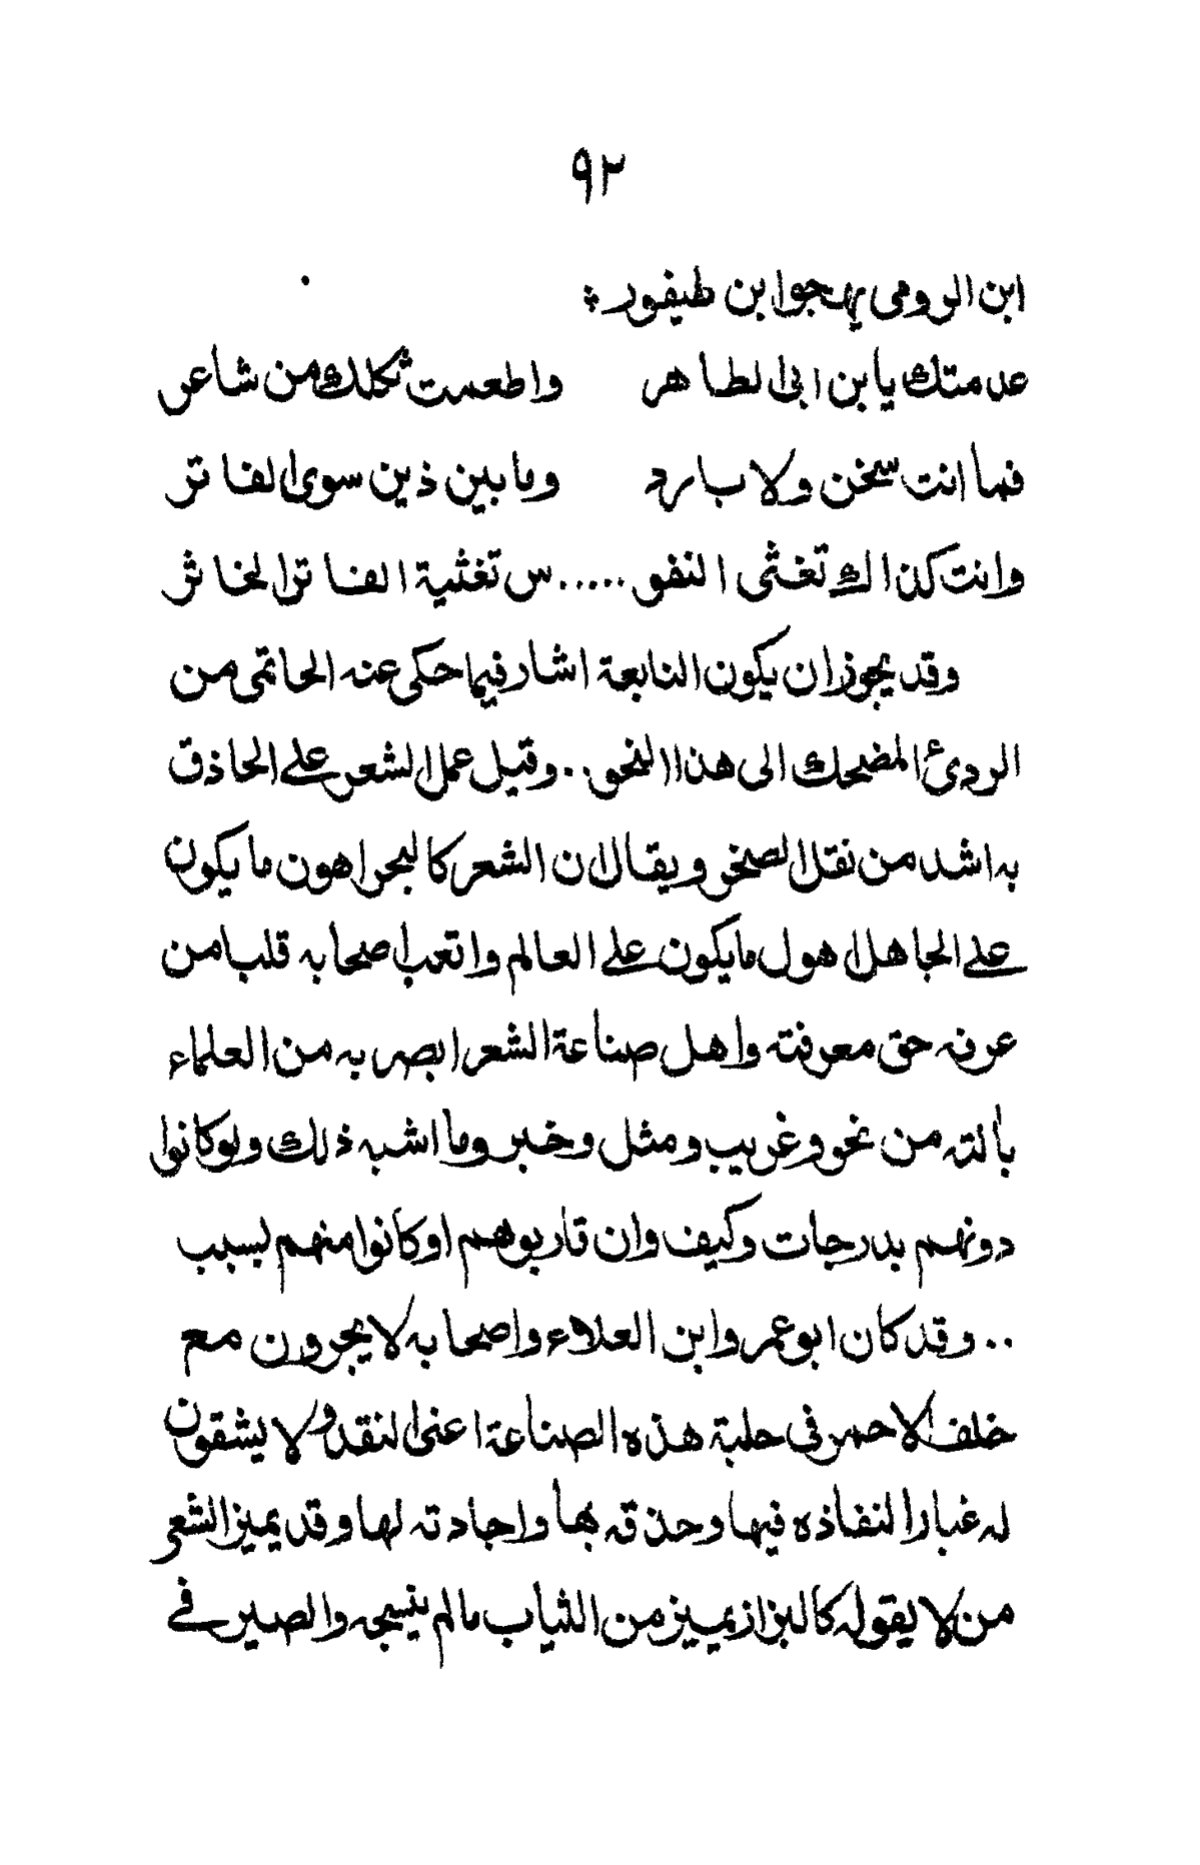 ٩٢
ابن الرومى يهجو ابن طيفور :
عدمتك يا بن ابى الطاهر واطعمت ثكلك من شاعر
فما انت سخن ولا بارد وما بين ذين سوى الفاتر
وانت كذاك تغثى النفو.....س تغثية الفاتر الخاثر
وقد يجوز ان يكون النابعة اشار فيما حكى عنه الحاتمى من
الردئ المضحك الى هذا النحو.. وقيل عمل الشعر على الحاذق
به اشد من نقل الصخر ويقال ان الشعر كالبحر اهون ما يكون
على الجاهل اهول ما يكون على العالم واتعب اصحابه قلبا من
عرفه حق معرفته واهل صناعة الشعر ابصر به من العلماء
بالته من نحو وغريب ومثل وخبر وما اشبه ذلك ولو كانوا
دونهم بدرجات وكيف وان قاربوهم او كانوا منهم بسبب
.. وقد كان ابو عمر وابن العلاء واصحابه لا يجرون مع
خلف الاحمر فى حلبة هذه الصناعة اعنى النقد ولا يشقون
له غبارا لنفاذه فيها وحذقه بها واجادته لها وقد يميز الشعر
من لا يقوله كالبزاز يميز من الثياب ما لم ينسجه والصير فى